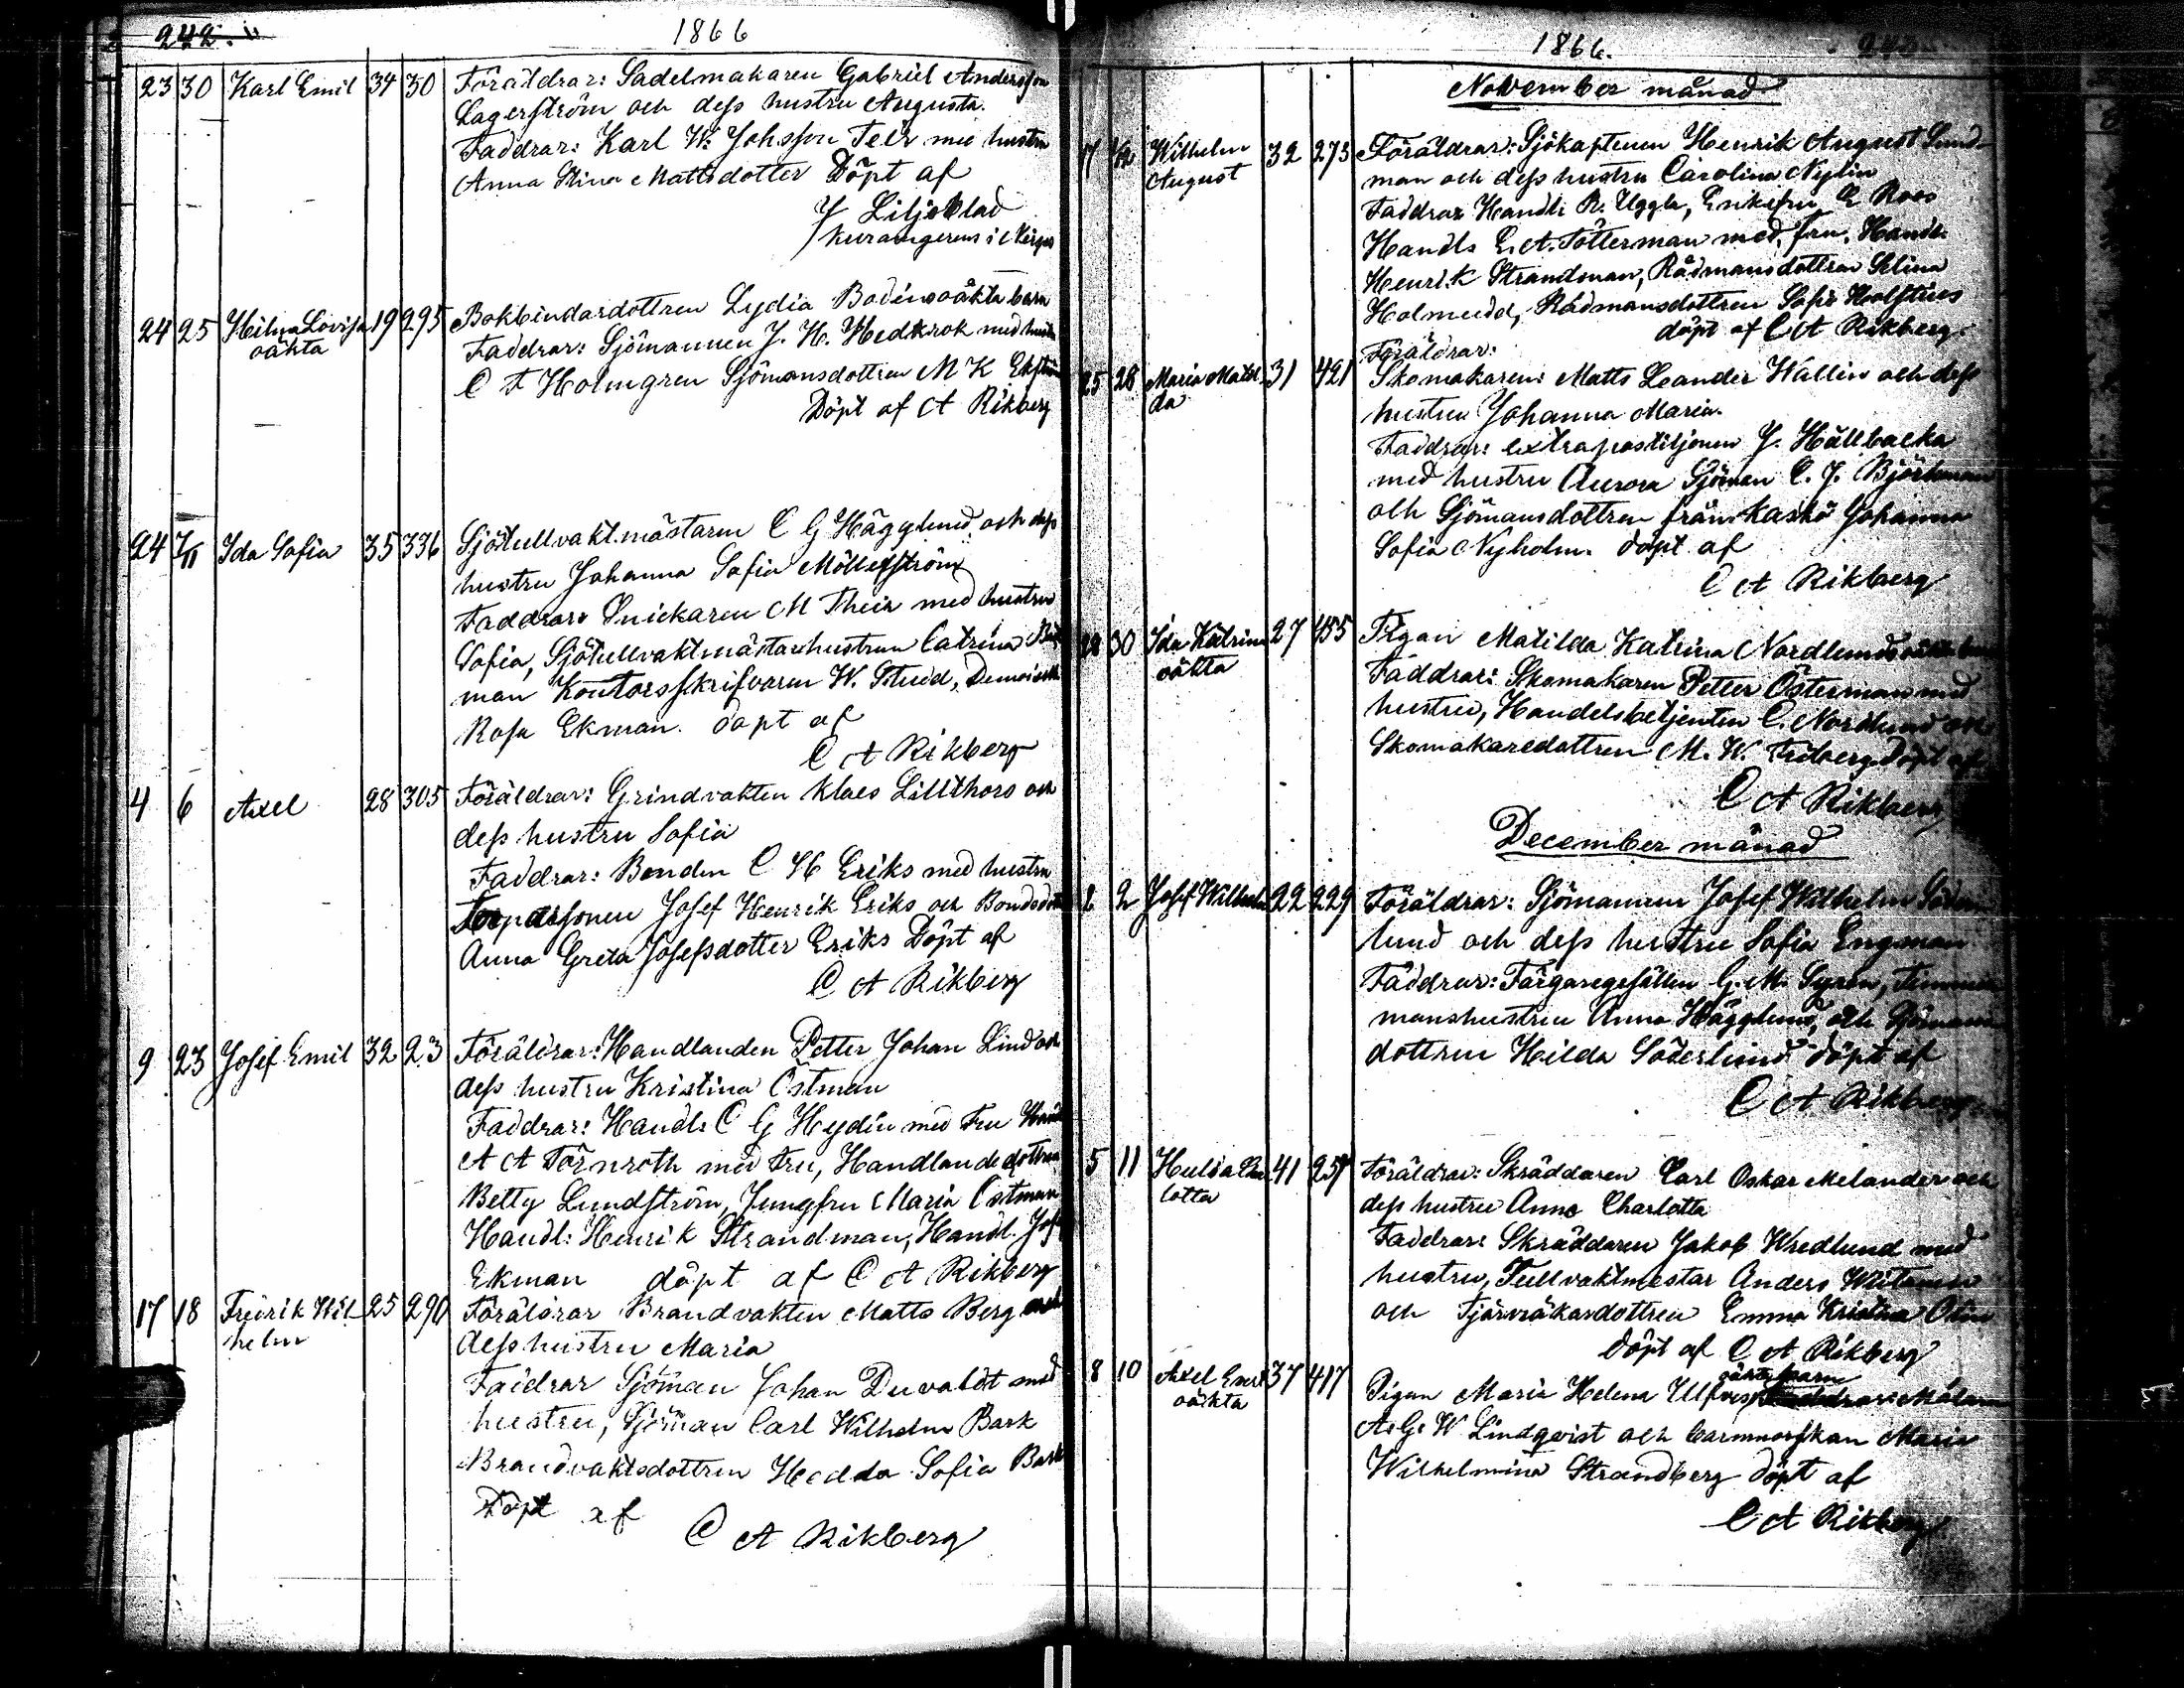 242.
1866
23 30 Karl Emil 34 30 Föräldrar: Sadelmakaren Gabriel Andersson
Lagerström och dess hustru Augusta.
Faddrar: Karl W. Johsson Teir med hustru
Anna Stina Mattsdotter Döpt af
J Liljeblad
24 25 Hilma Lovisa 19 295 Bokbindardottren Lydia Bodins oäkta barn
oäkta
Faddrar: Sjömannen J. H. Hedkrok med hustru
C F Holmgren Sjömansdottren M K
Döpt af A Rikberg
24 7/11 Ida Sofia 35 336 Sjötullvaktmästaren C G Hägglund och dess
hustru Johanna Sofia Möllerström
Faddrar: Snickaren M Their med hustru
Sofia, Sjötullvaktmästarhustrun Catrina
man Kontorsskrifvaren W. Studd, Demoiselle
Rosa Ekman. döpt af
C A Rikberg
4 6 Axel 28 305 Föräldrar: Grindvakten Klaes Lillthors och
dess hustru Sofia
Faddrar: Bonden C H Eriks med hustru
Josef Henrik Eriks och
Anna Greta Josefsdotter Eriks Döpt af
C A Rikberg
9 23 Josef Emil 32 23 Föräldrar: Handlanden Petter Johan Lind och
dess hustru Kristina Östman
Faddrar: Handl: C G Heydin med Fru
A A Törnroth med fru, Handlandedottren
Betty Lundström, Jungfru Maria Östman
Handl: Henrik Strandman, Handl.
Ekman döpt af C A Rikberg
17 18 Fredrik Wil- 25 290 Föräldrar Brandvakten Matts Berg och
helm
dess hustru Maria
Faddrar Sjöman Johan Duvaldt med
hustru, Sjöman Carl Wilhelm Bark
Brandvaktsdottren Hedda Sofia Bark
Döpt af
C A Rikberg
1866.
November månad
17 Wilhelm 32 273 Föräldrar: Sjökaptenen Henrik August Lind-
August
man och dess hustru Carolina Nylin
Faddrar Handl: R. Uggla, Enkefru E Roos
Handl: E. A. Tötterman med fru, Handl:
Henrik Strandman, Rådmansdottren Selina
Holmudd, Rådmansdottren Sofie Holstius
döpt af C A Rikberg.
Föräldrar:
25 28 Maria Matil- 31 421 Skomakaren Matts Leander Wallin och dess
da
hustru Johanna Maria.
Faddrar: extrapostiljonen J. Hällbacka
med hustru Aurora Sjöman C. J. Björkman
och Sjömansdottren från Kaskö Johanna
Sofia Nyholm. döpt af
C A Rikberg
30 Ida Katrina 27 455 Pigan Matilda Katrina Nordlunds oäkta barn
oäkta
Faddrar: Skomakaren Petter Österman med
hustru, Handelsbetjenten C. Nordlund och
Skomakaredottren M. W. Friberg Döpt af
C A Rikberg
December månad
2 Josef Wilhelm 22 229 Föräldrar: Sjömannen Josef Wilhelm Söder-
lund och dess hustru Sofia Engman
Faddrar: Färgaregesällen G. M. Syren, Timmer-
manshustrun Anna Hägglund, och Sjömans-
dottren Hilda Söderlund döpt af
C A Rikberg
5 11 Hulda Char 41 257 Föräldrar: Skräddaren Carl Oskar Melander och
lotta
dess hustru Anna Charlotta
Faddrar: Skräddaren Jakob Wredlund med
hustru, Tullvaktmestar Anders
och Tjärvräkardottren Emma Kristina
döpt af C A Rikberg
oäkta barn
8 10 Axel Emil 37 417 Pigan Maria Helena
oäkta
A. G. W Lindqvist och barnmorskan Maria
Wilhelmina Strandberg döpt af
C A Rikberg